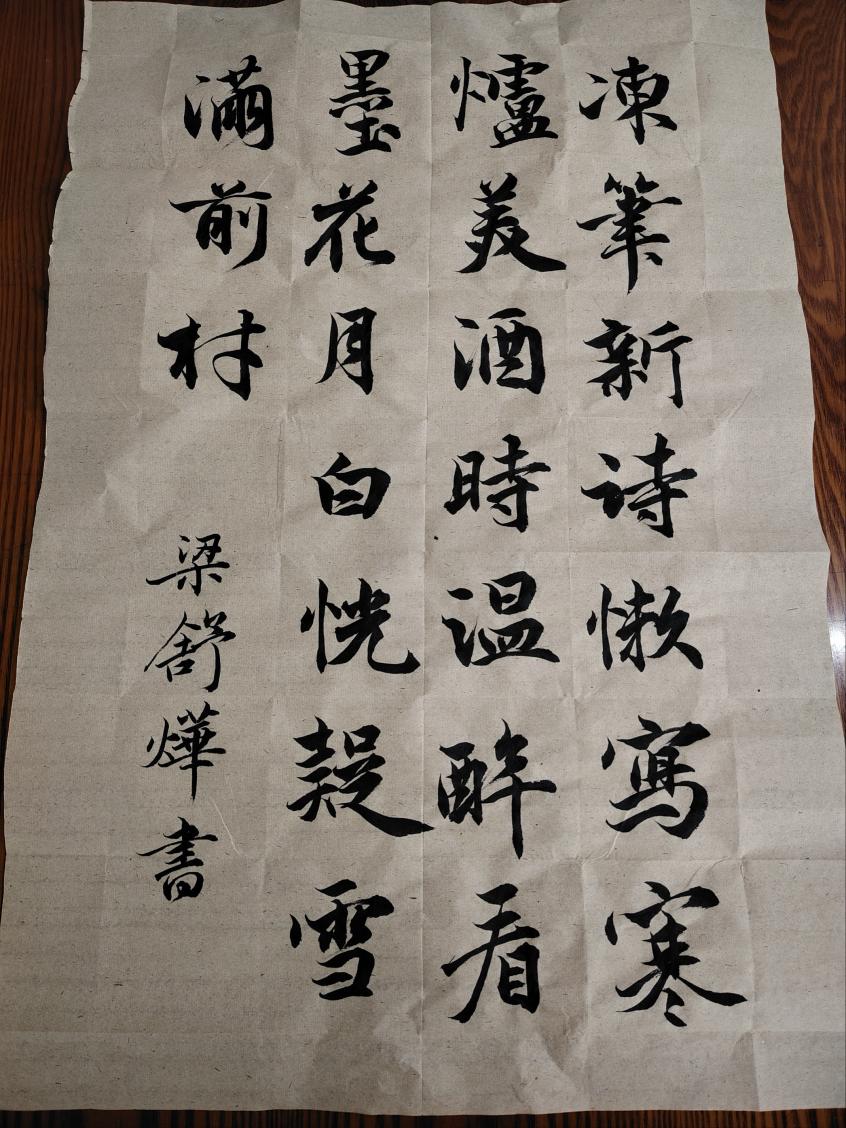 凍筆新詩懶寫寒
爐美酒時温醉看
墨花月白恍疑雪
滿前村
梁舒燁書